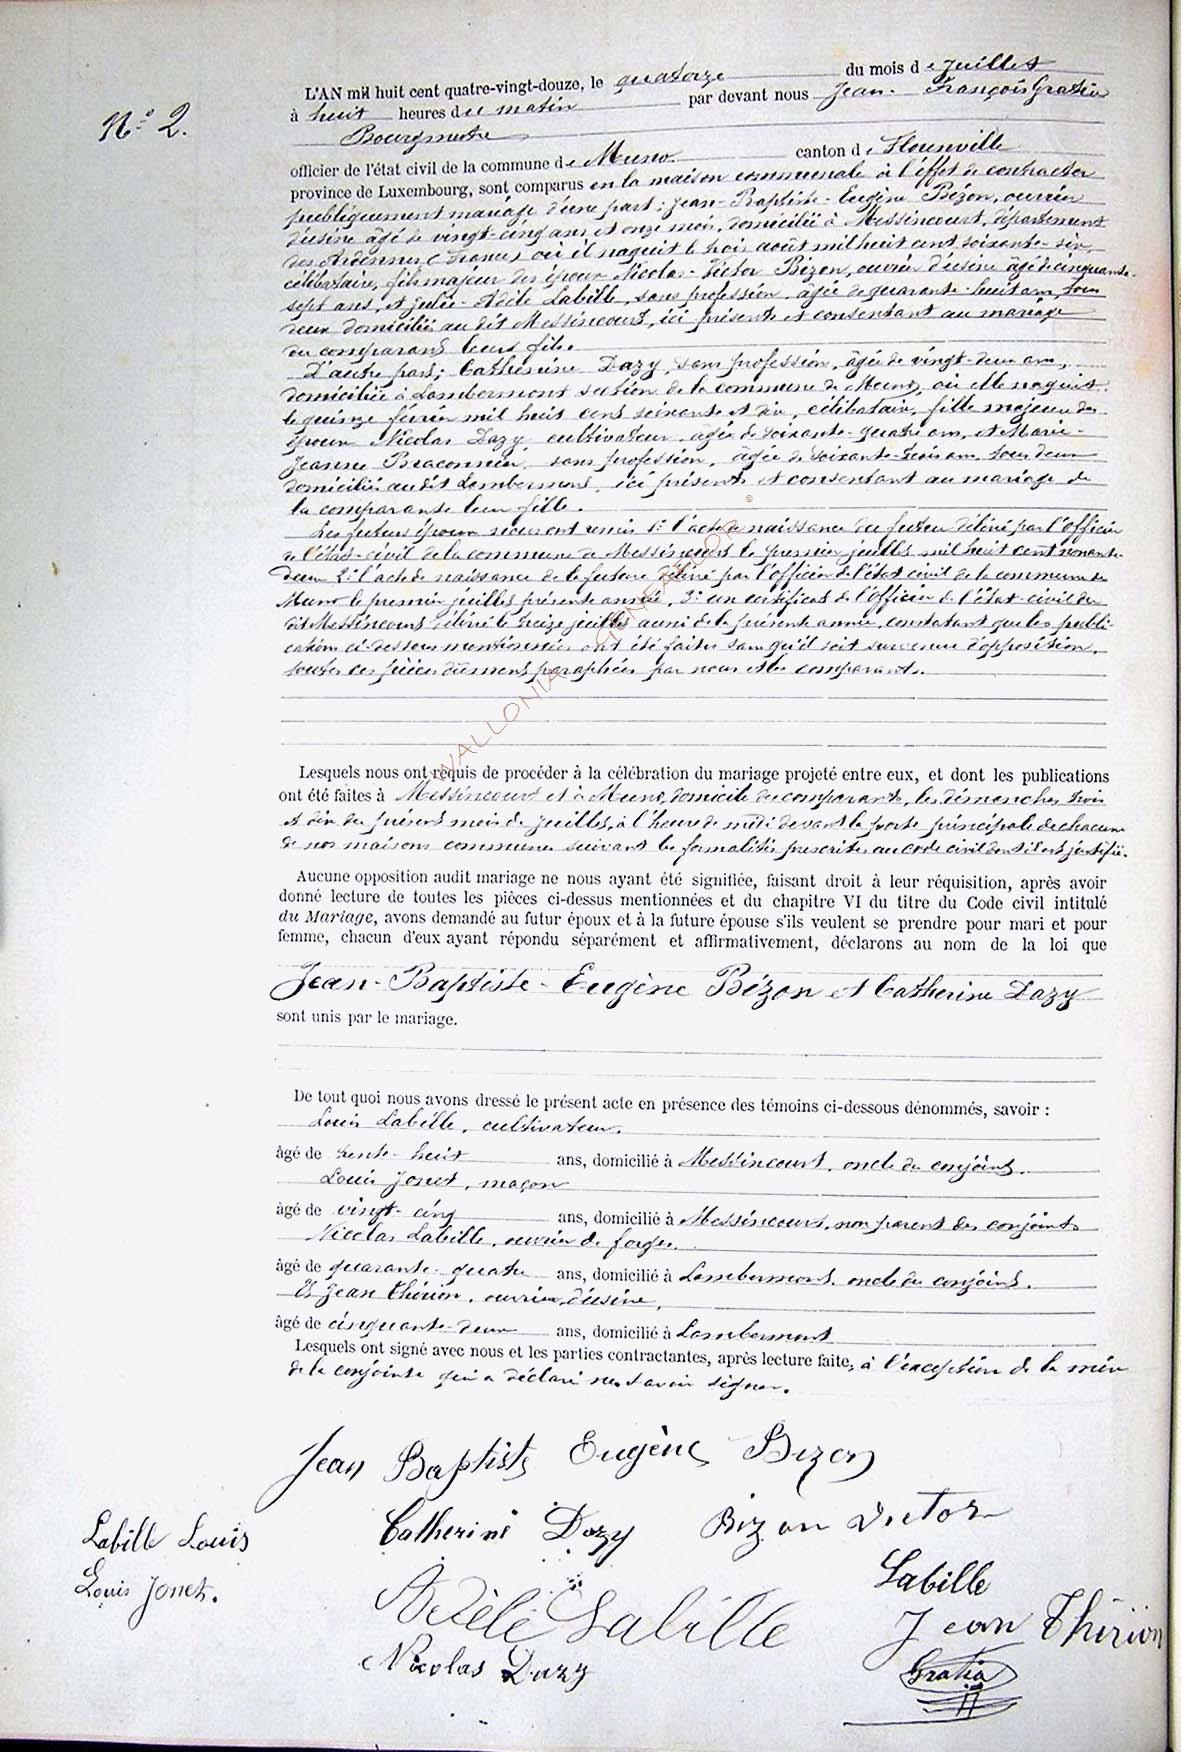 N° 2.
L'AN mil huit cent quatre-vingt-douze, le quatorze du mois de Juillet
à huit heures du matin par devant nous Jean-François Gratia
Bourgmestre
officier de l'état civil de la commune de Muno canton de Florenville
province de Luxembourg, sont comparus en la maison communale à l'effet de contracter
publiquement mariage d'une part: Jean-Baptiste-Eugène Bézon, ouvrier
d'usine âgé de vingt-cinq ans et onze mois, domicilié à Messincourt, département
des Ardennes (France) où il naquit le trois août mil huit cent soixante-six,
célibataire, fils majeur des époux Nicolas-Victor Bizon, ouvrier d'usine âgé de cinquante-
sept ans, et Julie-Adèle Labille, sans profession, âgée de quarante-huit ans, tous
deux domiciliés au dit Messincourt, ici présents et consentant au mariage
du comparant leur fils.
D'autre part; Cathérine Dazy, sans profession, âgée de vingt-deux ans,
domiciliée à Lambermont section de la commune de Muno, où elle naquit
le quinze février mil huit cent soixante et dix, célibataire, fille majeure des
époux Nicolas Dazy cultivateur âgé de soixante-quatre ans, et Marie-
Jeanne Braconnier, sans profession, âgée de soixante-trois ans, tous deux
domiciliés au dit Lambermont, ici présents et consentant au mariage de
la comparante leur fille.
Les futurs époux nous ont remis 1° l'acte de naissance du futur délivré par l'officier
de l'état-civil de la commune de Messincourt le premier juillet mil huit cent nonante-
deux 2° l'acte de naissance de la future délivré par l'officier de l'état civil de la commune de
Muno le premier juillet présente année, 3° un certificat de l'officier de l'état-civil du
dit Messincourt délivré le treize juillet aussi de la présente année, constatant que les publi-
cations ci-dessous mentionnées ont été faites sans qu'il soit survenu d'opposition,
toutes ces pièces dûment paraphées par nous et les comparants.
WALLONIA GENEALOR ©
Lesquels nous ont requis de procéder à la célébration du mariage projeté entre eux, et dont les publications
ont été faites à Messincourt et à Muno, domicile des comparants, les dimanches trois
et dix du présent mois de juillet, à l'heure de midi devant la porte principale de chacune
de nos maisons communes suivant les formalités prescrites au code civil dont il est justifié.
Aucune opposition audit mariage ne nous ayant été signifiée, faisant droit à leur réquisition, après avoir
donné lecture de toutes les pièces ci-dessus mentionnées et du chapitre VI du titre du Code civil intitulé
du Mariage, avons demandé au futur époux et à la future épouse s'ils veulent se prendre pour mari et pour
femme, chacun d'eux ayant répondu séparément et affirmativement, déclarons au nom de la loi que
Jean-Baptiste-Eugène Bézon et Catherine Dazy
sont unis par le mariage.
De tout quoi nous avons dressé le présent acte en présence des témoins ci-dessous dénommés, savoir :
Louis Labille, cultivateur,
âgé de trente-huit ans, domicilié à Messincourt, oncle du conjoint.
Louis Jonet, maçon
âgé de vingt-cinq ans, domicilié à Messincourt, non parent des conjoints
Nicolas Labille, ouvrier de forges,
âgé de quarante-quatre ans, domicilié à Lambermont, oncle du conjoint.
Et Jean Thirion, ouvrier d'usine,
âgé de cinquante-deux ans, domicilié à Lambermont
Lesquels ont signé avec nous et les parties contractantes, après lecture faite, à l'exception de la mère
de la conjointe qui a déclaré ne savoir signer.
Jean Baptiste Eugène Bizon
Labille Louis Catherine Dazy Bizon Victor
Louis Jonet. Adèle Labille Labille
Jean Thirion
Nicolas Dazy Gratia